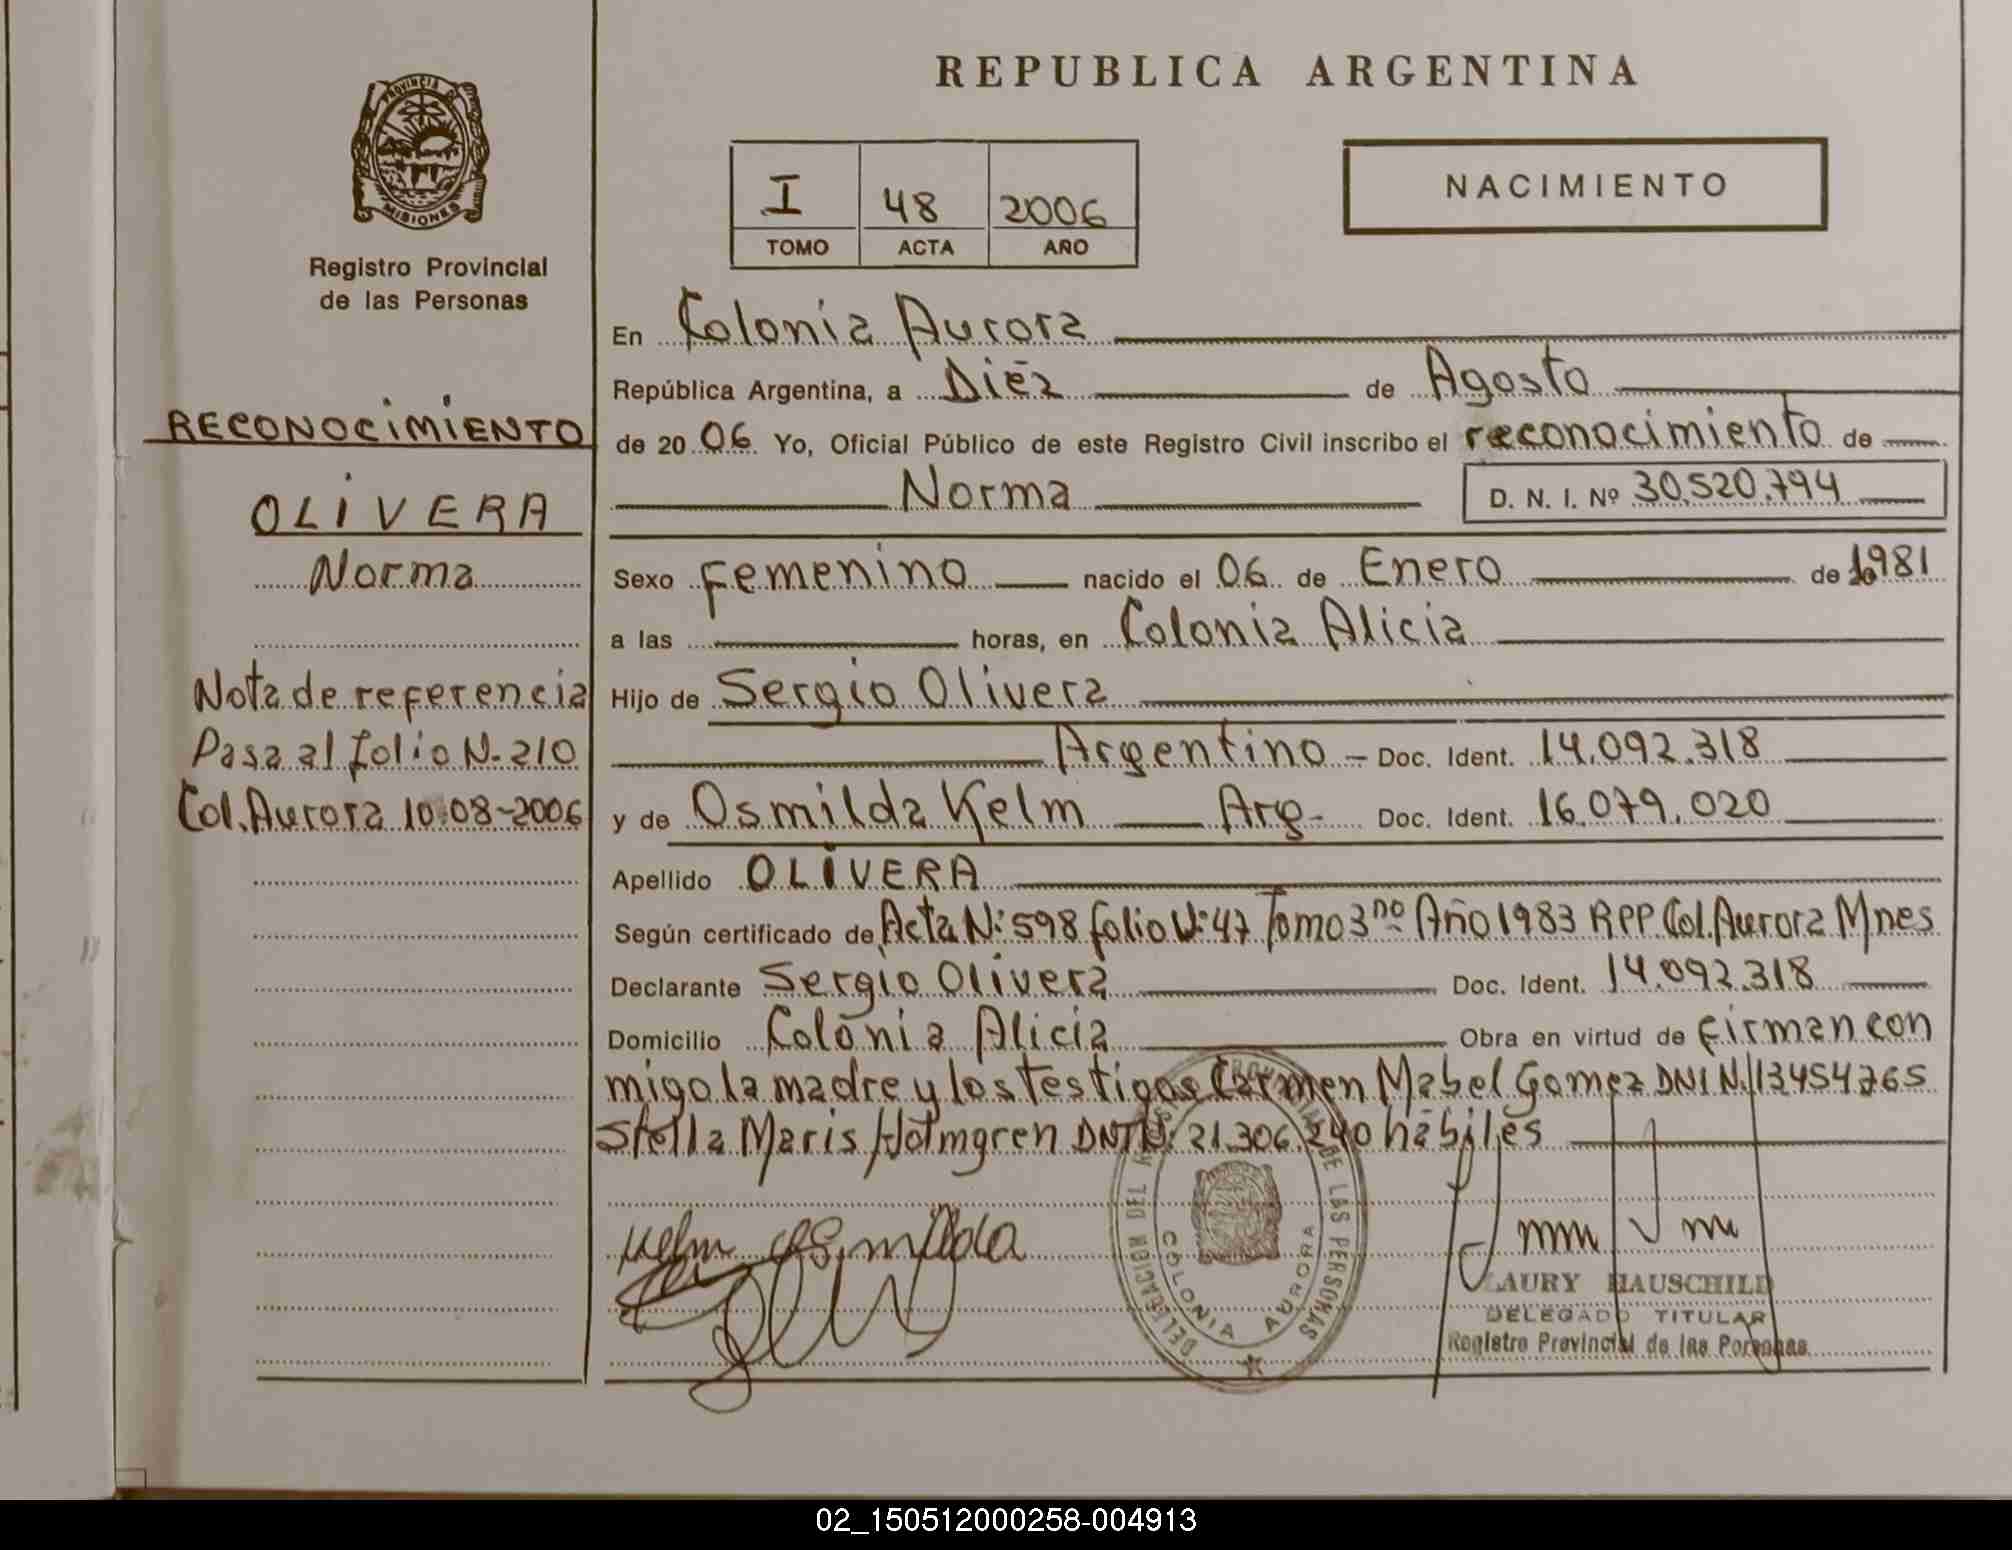 REPUBLICA ARGENTINA
PROVINCIA DE
MISIONES
Registro Provincial
de las Personas
I 48 2006
TOMO ACTA AÑO
NACIMIENTO
RECONOCIMIENTO
OLIVERA
Norma
Nota de referencia
Pasa al folio N-210
Col. Aurora 10-08-2006
En Colonia Aurora
República Argentina, a Diez de Agosto
de 20 06 Yo, Oficial Público de este Registro Civil inscribo el reconocimiento de
Norma D. N. I. Nº 30.520.794
Sexo Femenino nacido el 06 de Enero de 1981
a las horas, en Colonia Alicia
Hijo de Sergio Olivera
Argentino - Doc. Ident. 14.092.318
y de Osmilda Kelm Arg- Doc. Ident. 16.079.020
Apellido OLIVERA
Según certificado de Acta N: 598 folio N: 47 Tomo 3no Año 1983 RPP. Col. Aurora Mnes
Declarante Sergio Olivera Doc. Ident. 14.092.318
Domicilio Colonia Alicia Obra en virtud de Firman con
migo la madre y los testigos Carmen Mabel Gomez DNI N. 13454765
Stella Maris Holmgren DNI N: 21.306.240 hábiles
Kelm Osmilda
DELEGACION DEL REGISTRO PROVINCIAL DE LAS PERSONAS
COLONIA AURORA
LAURY HAUSCHILD
DELEGADO TITULAR
Registro Provincial de las Personas
02_150512000258-004913